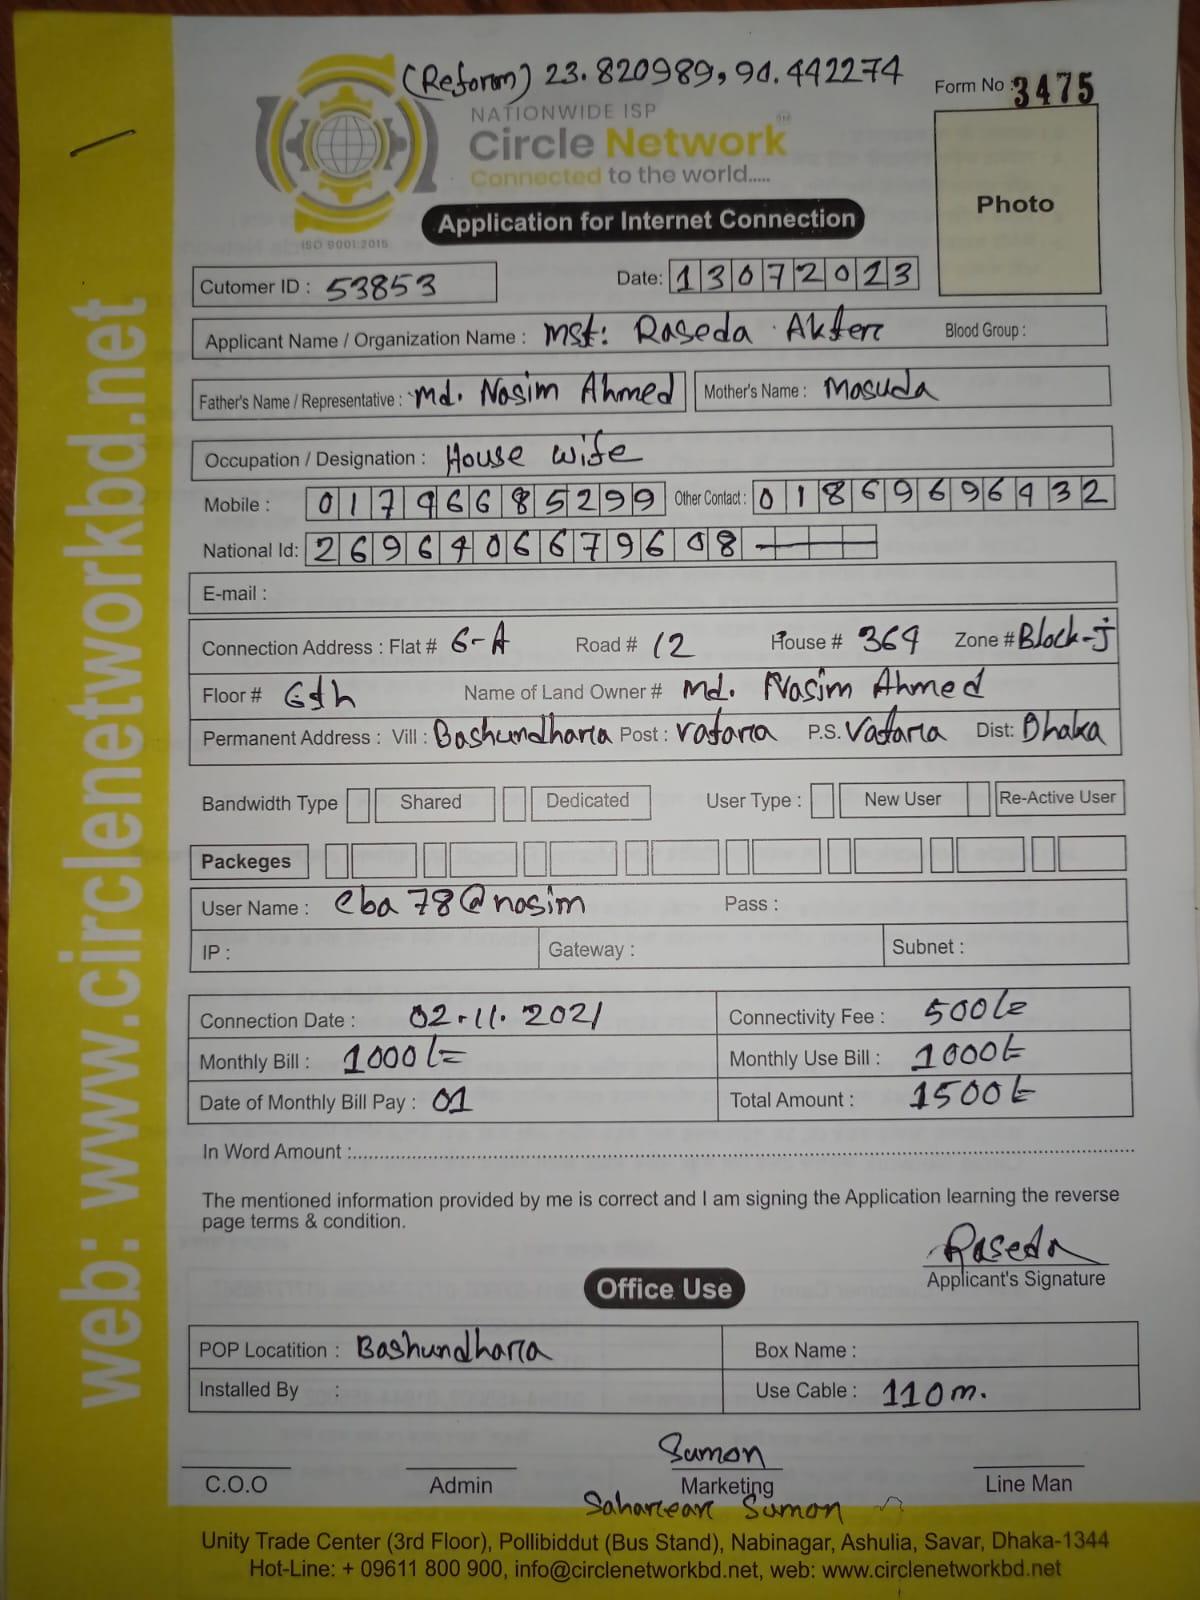 (Reform) 23.820989, 90.442274
Form No : 3475
NATIONWIDE ISP
Circle Network SM
Connected to the world.....
ISO 9001:2015
Photo
Application for Internet Connection
Cutomer ID : 53853 Date: 13072023
Applicant Name / Organization Name : Mst: Raseda Akter Blood Group :
Father's Name / Representative : Md. Nasim Ahmed Mother's Name : Masuda
Occupation / Designation : House wife
Mobile : 01796685299 Other Contact : 01869696932
National Id: 2696406679608
E-mail :
Connection Address : Flat # 6-A Road # 12 House # 364 Zone # Block-J
Floor # 6th Name of Land Owner # Md. Nasim Ahmed
Permanent Address : Vill : Bashundhara Post : Vatara P.S. Vatara Dist: Dhaka
Bandwidth Type Shared Dedicated User Type : New User Re-Active User
Packeges
User Name : eba78@nasim Pass :
IP : Gateway : Subnet :
Connection Date : 02.11.2021 Connectivity Fee : 500/=
Monthly Bill : 1000/= Monthly Use Bill : 1000/=
Date of Monthly Bill Pay : 01 Total Amount : 1500/=
In Word Amount :
The mentioned information provided by me is correct and I am signing the Application learning the reverse
page terms & condition.
Raseda
Applicant's Signature
Office Use
POP Locatition : Bashundhara Box Name :
Installed By : Use Cable : 110 m.
Sumon
C.O.O Admin Marketing Line Man
Saharear Sumon
Unity Trade Center (3rd Floor), Pollibiddut (Bus Stand), Nabinagar, Ashulia, Savar, Dhaka-1344
Hot-Line: + 09611 800 900, info@circlenetworkbd.net, web: www.circlenetworkbd.net
web: www.circlenetworkbd.net